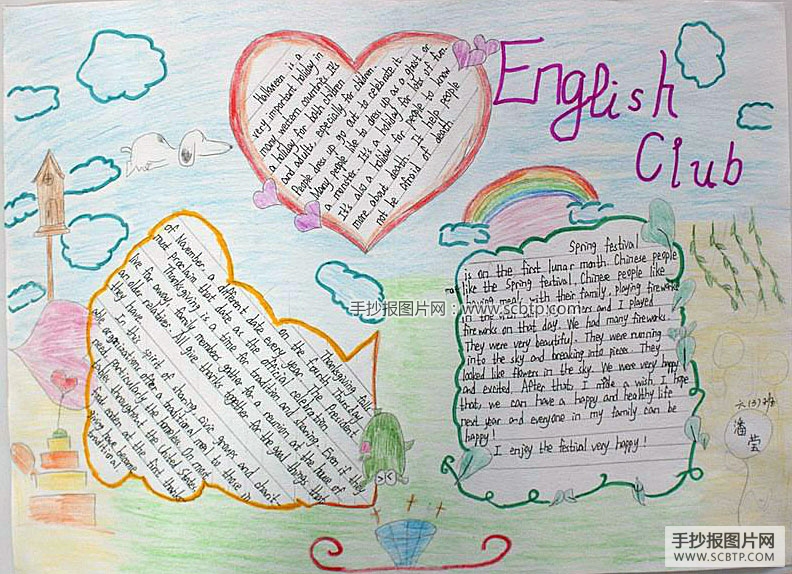 English
Club
Halloween is a
very important holiday in
many western countries. It's
a holiday for both children
and adults, especially for children.
People dress up go out to celebrate it.
Many people like to dress up as a ghost or
a monster. It's a holiday for lots of fun.
It's also a holiday for people to know
more about death. It help people
not be afraid of death.
Thanksgiving falls
on the fourth Thursday
of November, a different date every year. The President
must proclaim that date as the official celebration.
Thanksgiving is a time for tradition and sharing. Even if they
live far away, family members gather for a reunion at the house of
an older relative. All give thanks together for the good things that
they have.
In this spirit of sharing, civic groups and charit-
able organizations offer a traditional meal to those in
need, particularly the homeless. On most
tables throughout the United States,
food eaten at the first thanks-
giving have become
traditional
Spring festival
is on the first lunar month. Chinese people
like the Spring festival. Chinese people like
having meal with their family, playing fireworks
in the and I played
fireworks on that day. We had many fireworks.
They were very beautiful. They were running
into the sky and breaking into pieces. They
looked like flowers in the sky. We were very happy
and excited. After that, I made a wish. I hope
that, we can have a happy and healthy life
next year and everyone in my family can be
happy!
I enjoy the festival very happy!
六(3)班
潘莹
手抄报图片网：www.scbtp.com
手抄报图片网
WWW.SCBTP.COM